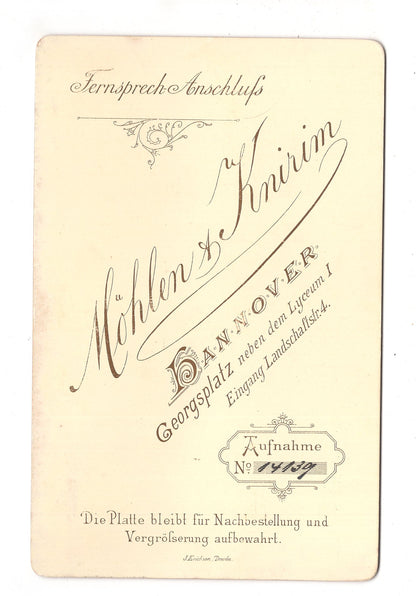 Fernsprech-Anschluſs
Möhlen & Knirim
HANNOVER
Georgsplatz neben dem Lyceum I
Eingang Landschaftstr. 4.
Aufnahme
No. 14139
Die Platte bleibt für Nachbestellung und
Vergröſserung aufbewahrt.